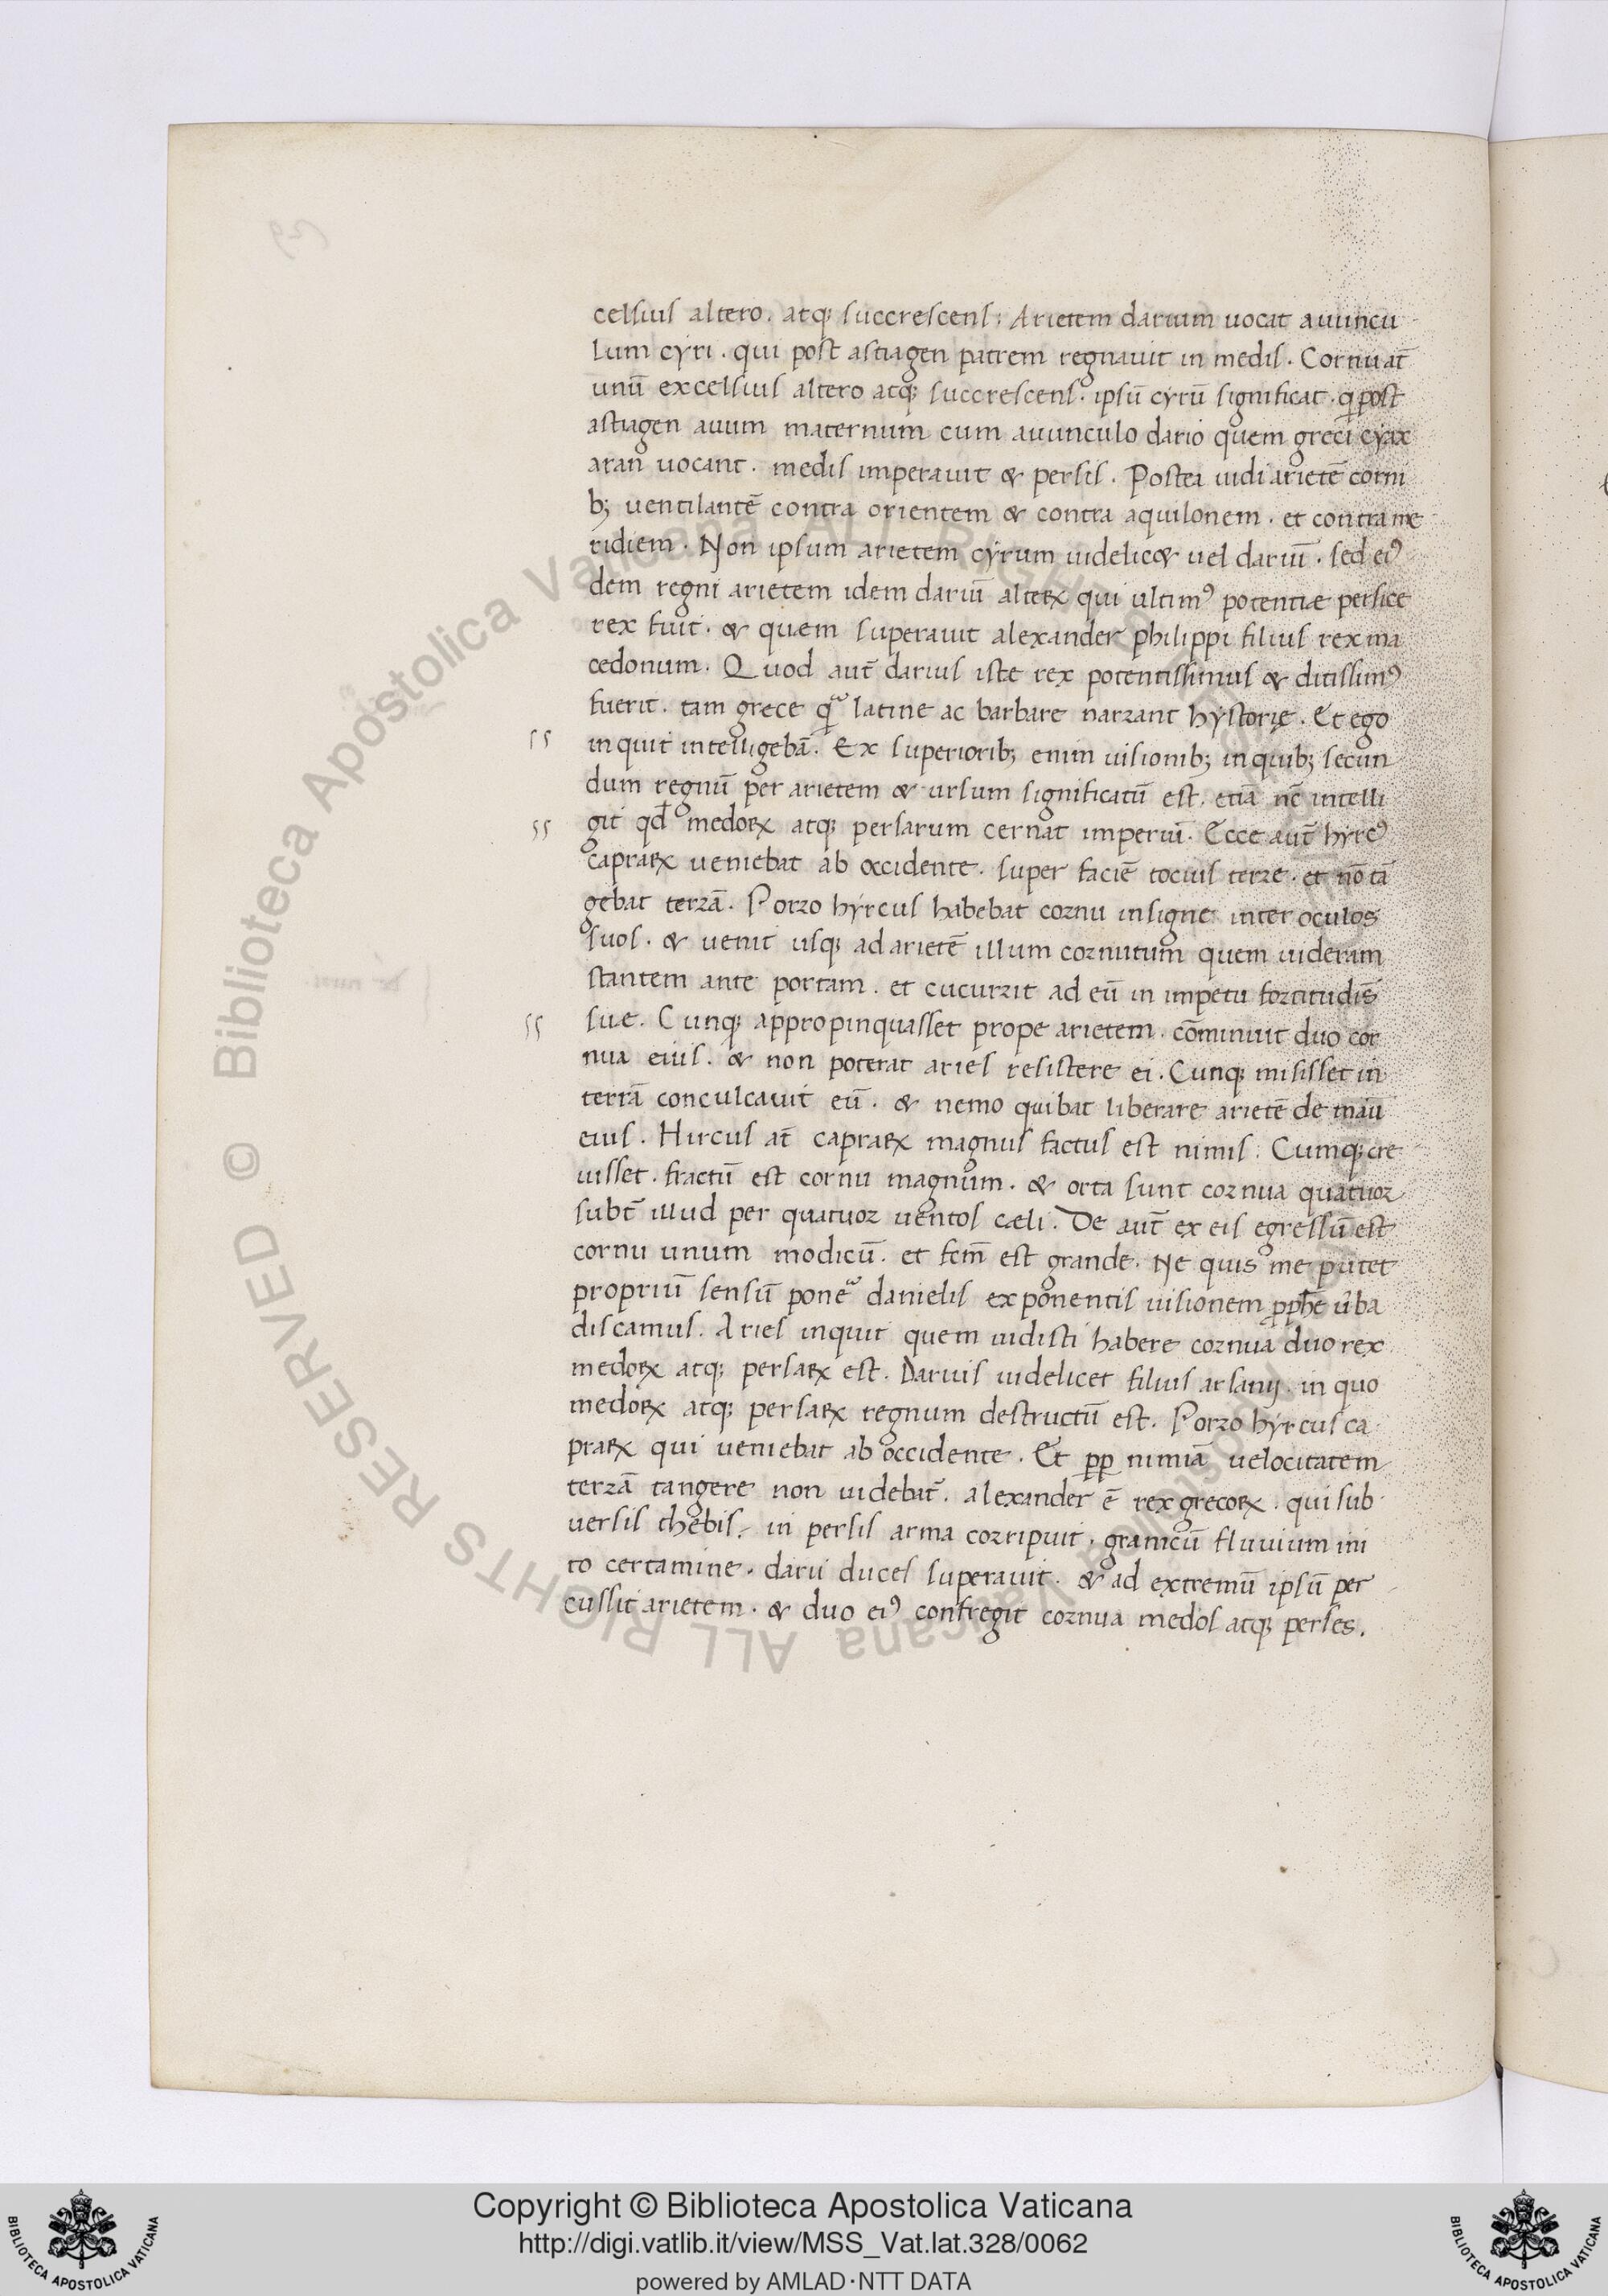 celsius altero. atq; succrescens; Arietem darium uocat auuncu
lum cyri. qui post astiagen patrem regnauit in medis. Cornu at̄
unū excelsius altero atq; succrescens. ipsū cyrū significat. q post
astiagen auum maternum cum auunculo dario quem greci cyax
aran uocant. medis imperauit & persis. Postea uidi arietē corni
b; uentilantē contra orientem & contra aquilonem. et contra me
ridiem. Non ipsum arietem cyrum uidelic& uel dariū. sed eiꝰ
dem regni arietem idem dariū alteꝝ qui ultimꝰ potentiæ persice
rex fuit. & quem superauit alexander philippi filius rex ma
cedonum. Quod aut̄ darius iste rex potentissimus & ditissimꝰ
fuerit. tam grece q̄ latine ac barbare narrant hystorię. Et ego
inquit intelligebā. Ex superiorib; enim uisionib; in quib; secun
dum regnū per arietem & ursum significatū est. etiā nc̄ intelli
git qd̄ medoꝝ atq; persarum cernat imperiū. Ecce aut̄ hyrcꝰ
capraꝝ ueniebat ab occidente. super faciē tocius terre. et nō tā
gebat terrā. Porro hyrcus habebat cornu insigne inter oculos
suos. & uenit usq; ad arietē illum cornutum quem uideram
stantem ante portam. et cucurrit ad eū in impetu fortitudīs
sue. Cunq; appropinquasset prope arietem. cōminuit duo cor
nua eius. & non poterat aries resistere ei. Cunq; misisset in
terrā conculcauit eū. & nemo quibat liberare arietē de manū
eius. Hircus at̄ capraꝝ magnus factus est nimis. Cumq; cre
uisset. fractū est cornu magnum. & orta sunt cornua quatuor
subt̄ illud per quatuor uentos cæli. De aut̄ ex eis egressū est
cornu unum modicū. et fcm̄ est grande. Ne quis me putet
propriū sensū pone danielis exponentis uisionem ꝓphe ūba
discamus. Aries inquit quem uidisti habere cornua duo rex
medoꝝ atq; persaꝝ est. Darius uidelicet filius arsanij. in quo
medoꝝ atq; persaꝝ regnum destructū est. Porro hyrcus ca
praꝝ qui ueniebat ab occidente. Et ꝓp nimiā uelocitatem
terrā tangere non uidebat̄. alexander ē rex grecoꝝ. qui sub
uersis thebis. in persis arma corripuit. granicū fluuium ini
to certamine. darii duces superauit. & ad extremū ipsū per
cussit arietem. & duo eiꝰ confregit cornua medos atq; perses.
Copyright © Biblioteca Apostolica Vaticana
http://digi.vatlib.it/view/MSS_Vat.lat.328/0062
powered by AMLAD·NTT DATA